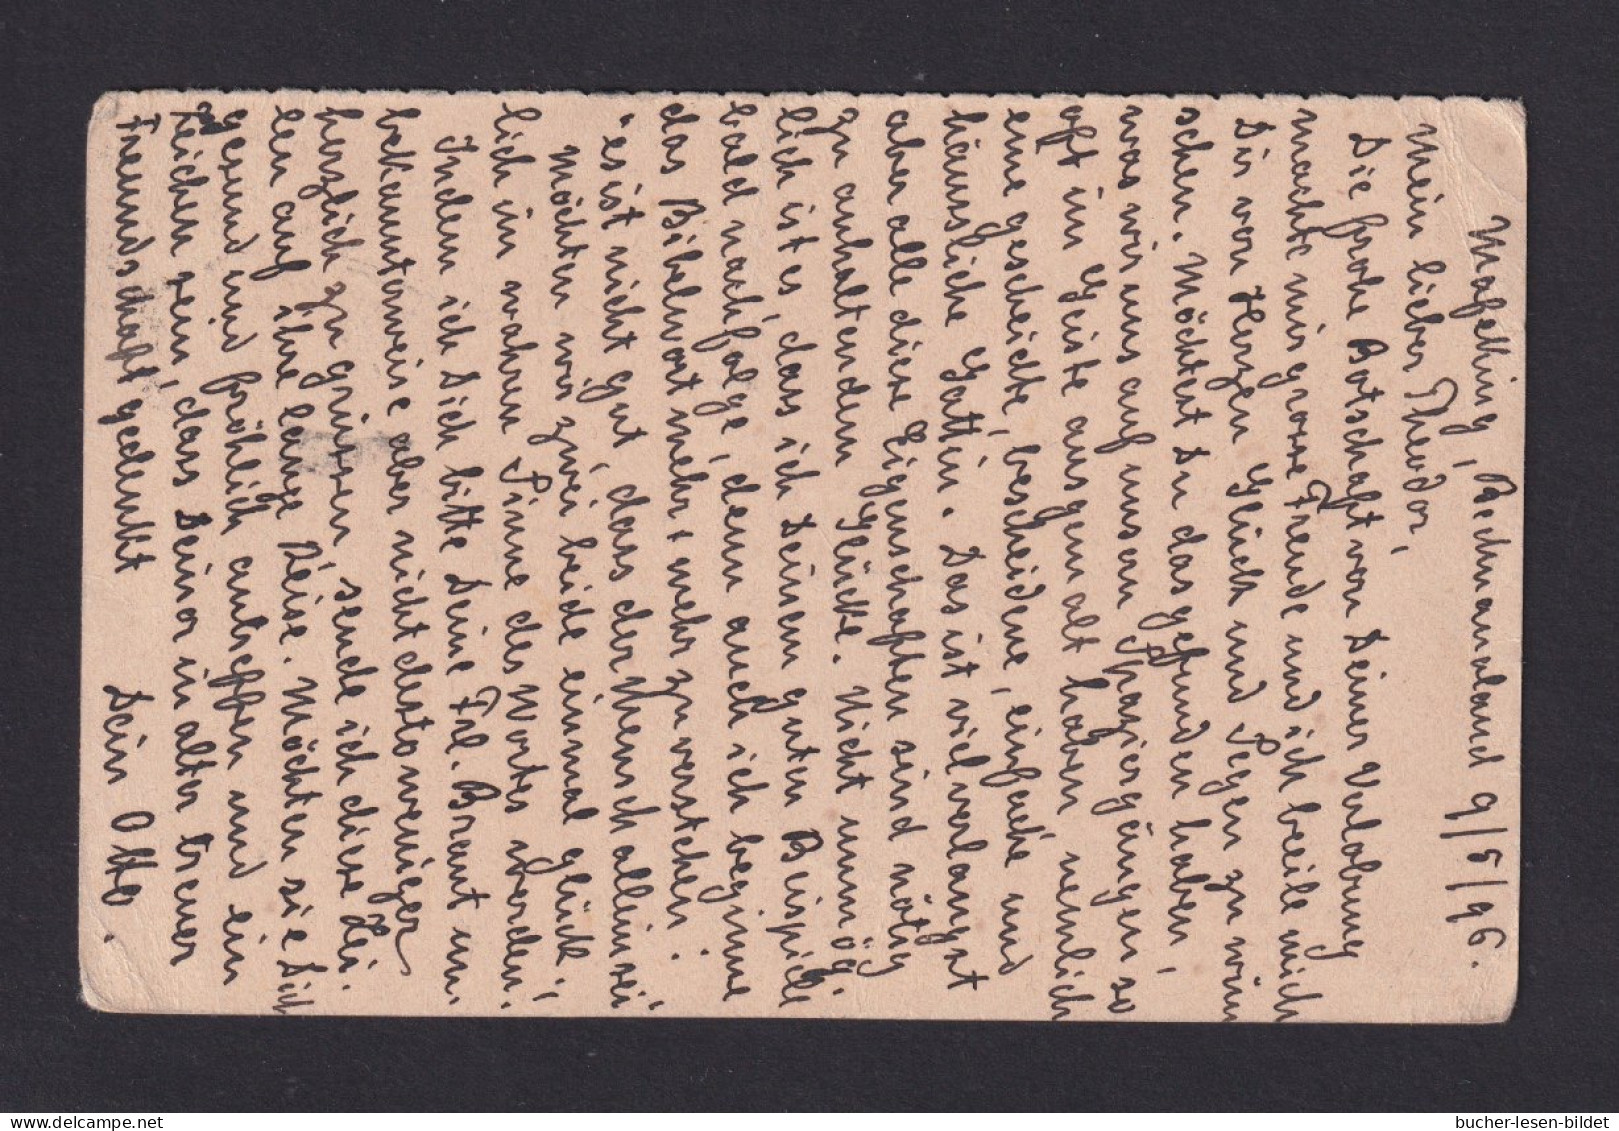 Mafeking, Bechuanaland 9/5/96.
Mein lieber Theodor,
Die frohe Botschaft von Deiner Verlobung
machte mir grosse Freude und ich beeile mich
Dir von Herzen Glück und Segen zu wün
schen. Möchtest Du das gefunden haben,
was wir uns auf unsern Spaziergängen so
oft im Geiste ausgemalt haben nemlich
eine gescheidte, bescheidene, einfache und
häusliche Gattin. Das ist viel verlangst
aber alle diese Eigenschaften sind nötig
zu anhaltendem Glücke. Nicht unmög-
lich ist es, dass ich Deinem guten Beispiele
bald nachfolge, denn auch ich beginne
das Bibelwort mehr & mehr zu verstehen:
"es ist nicht gut, dass der Mensch allein sei"
Möchten wir zwei beide einmal glück-
lich im wahren Sinne des Wortes werden.
Indem ich Dich bitte Deine Frl. Braut un-
bekannterweise aber nicht destoweniger
herzlich zu grüssen, sende ich diese Zei-
len auf ihre lange Reise. Möchten sie Dich
gesund und fröhlich antreffen und ein
Zeichen sein, dass Deiner in alter treuer
Freundschaft gedenkt
Dein Otto.
bucher-lesen-bildet